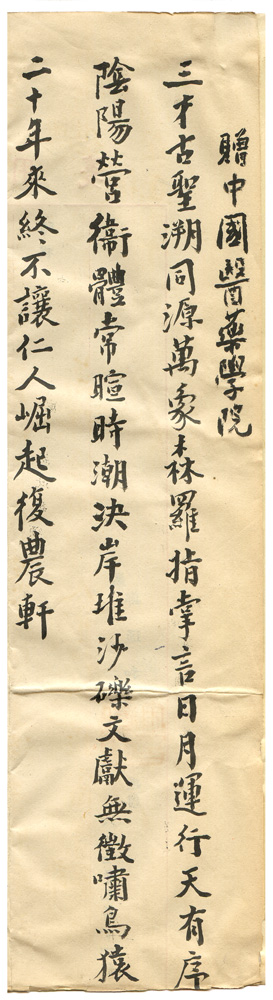 贈中國醫藥學院
三才古聖溯同源萬象森羅指掌言日月運行天有序
陰陽營衞體常暄時潮決岸堆沙礫文獻無徵嘯鳥猿
二十年來終不讓仁人崛起復農軒